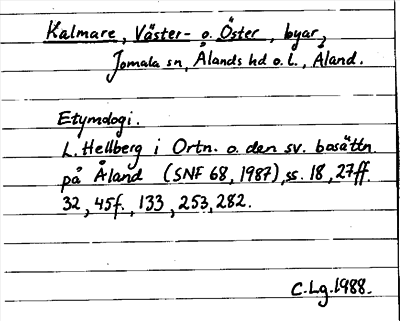 Kalmare, Väster- o. Öster, byar,
Jomala sn, Ålands hd o. l., Åland.
Etymologi.
L. Hellberg i Ortn. o. den sv. bosättn.
på Åland (SNF 68, 1987), ss. 18, 27ff.
32, 45f., 133, 253, 282.
C. Lg. 1988.